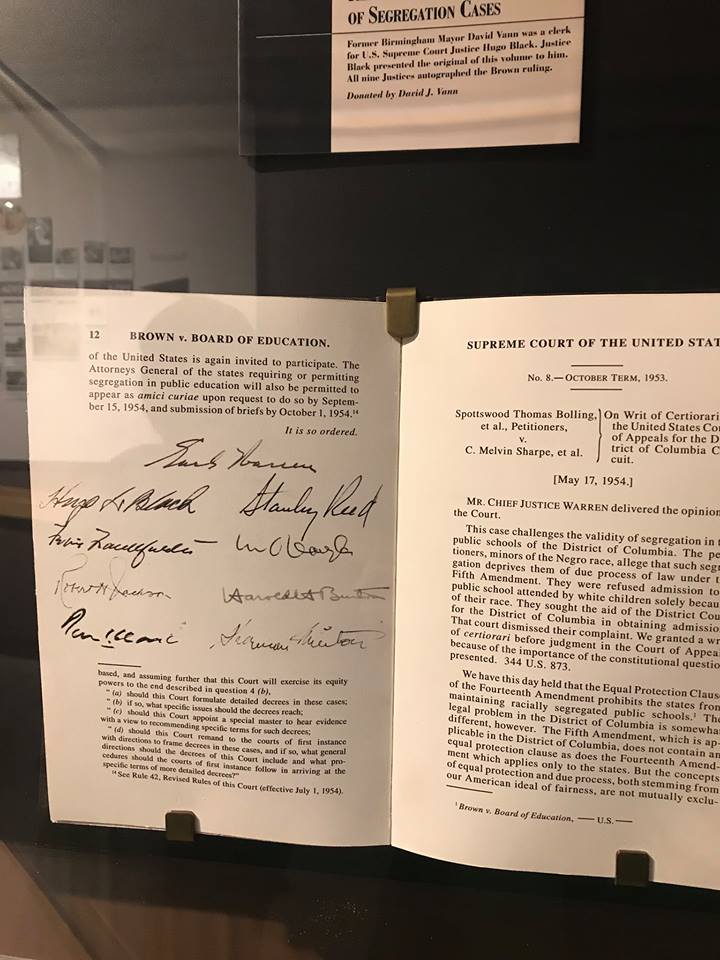 OF SEGREGATION CASES
Former Birmingham Mayor David Vann was a clerk
for U.S. Supreme Court Justice Hugo Black. Justice
Black presented the original of this volume to him.
All nine Justices autographed the Brown ruling.
Donated by David J. Vann
12 BROWN v. BOARD OF EDUCATION.
of the United States is again invited to participate. The
Attorneys General of the states requiring or permitting
segregation in public education will also be permitted to
appear as amici curiae upon request to do so by Septem-
ber 15, 1954, and submission of briefs by October 1, 1954.¹⁴
It is so ordered.
Earl Warren
Hugo L Black Stanley Reed
Felix Frankfurter Wm O Douglas
Robert H Jackson Harold H Burton
Tom C Clark Sherman Minton
based, and assuming further that this Court will exercise its equity
powers to the end described in question 4 (b),
"(a) should this Court formulate detailed decrees in these cases;
"(b) if so, what specific issues should the decrees reach;
"(c) should this Court appoint a special master to hear evidence
with a view to recommending specific terms for such decrees;
"(d) should this Court remand to the courts of first instance
with directions to frame decrees in these cases, and if so, what general
directions should the decrees of this Court include and what pro-
cedures should the courts of first instance follow in arriving at the
specific terms of more detailed decrees?"
¹⁴ See Rule 42, Revised Rules of this Court (effective July 1, 1954).
SUPREME COURT OF THE UNITED STAT
No. 8.—OCTOBER TERM, 1953.
Spottswood Thomas Bolling,
et al., Petitioners,
v.
C. Melvin Sharpe, et al.
On Writ of Certiorari
the United States Cou
of Appeals for the D
trict of Columbia C
cuit.
[May 17, 1954.]
MR. CHIEF JUSTICE WARREN delivered the opinion
the Court.
This case challenges the validity of segregation in t
public schools of the District of Columbia. The pe
tioners, minors of the Negro race, allege that such segr
gation deprives them of due process of law under t
Fifth Amendment. They were refused admission to
public school attended by white children solely becau
of their race. They sought the aid of the District Cou
for the District of Columbia in obtaining admissio
That court dismissed their complaint. We granted a wr
of certiorari before judgment in the Court of Appea
because of the importance of the constitutional questio
presented. 344 U.S. 873.
We have this day held that the Equal Protection Clause
of the Fourteenth Amendment prohibits the states from
maintaining racially segregated public schools.¹ The
legal problem in the District of Columbia is somewha
different, however. The Fifth Amendment, which is ap-
plicable in the District of Columbia, does not contain an
equal protection clause as does the Fourteenth Amend-
ment which applies only to the states. But the concepts
of equal protection and due process, both stemming from
our American ideal of fairness, are not mutually exclu-
¹ Brown v. Board of Education, — U.S. —